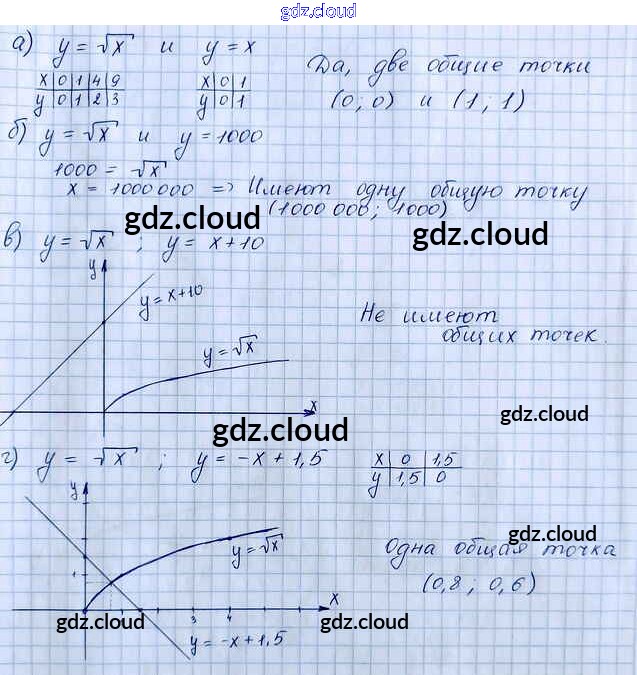 gdz.cloud
а) y = √x и y = x
x 0 1 4 9
y 0 1 2 3
x 0 1
y 0 1
Да, две общие точки
(0; 0) и (1; 1)
б) y = √x и y = 1000
1000 = √x
x = 1000000 => Имеют одну общую точку
(1000 000; 1000)
gdz.cloud
gdz.cloud
в) y = √x ; y = x+10
y
y = x+10
y = √x
x
Не имеют
общих точек.
gdz.cloud
gdz.cloud
г) y = √x ; y = -x + 1,5
x 0 1,5
y 1,5 0
y
1
y = √x
3 4
x
y = -x + 1,5
Одна общая точка
(0,8 ; 0,6)
gdz.cloud
gdz.cloud
gdz.cloud